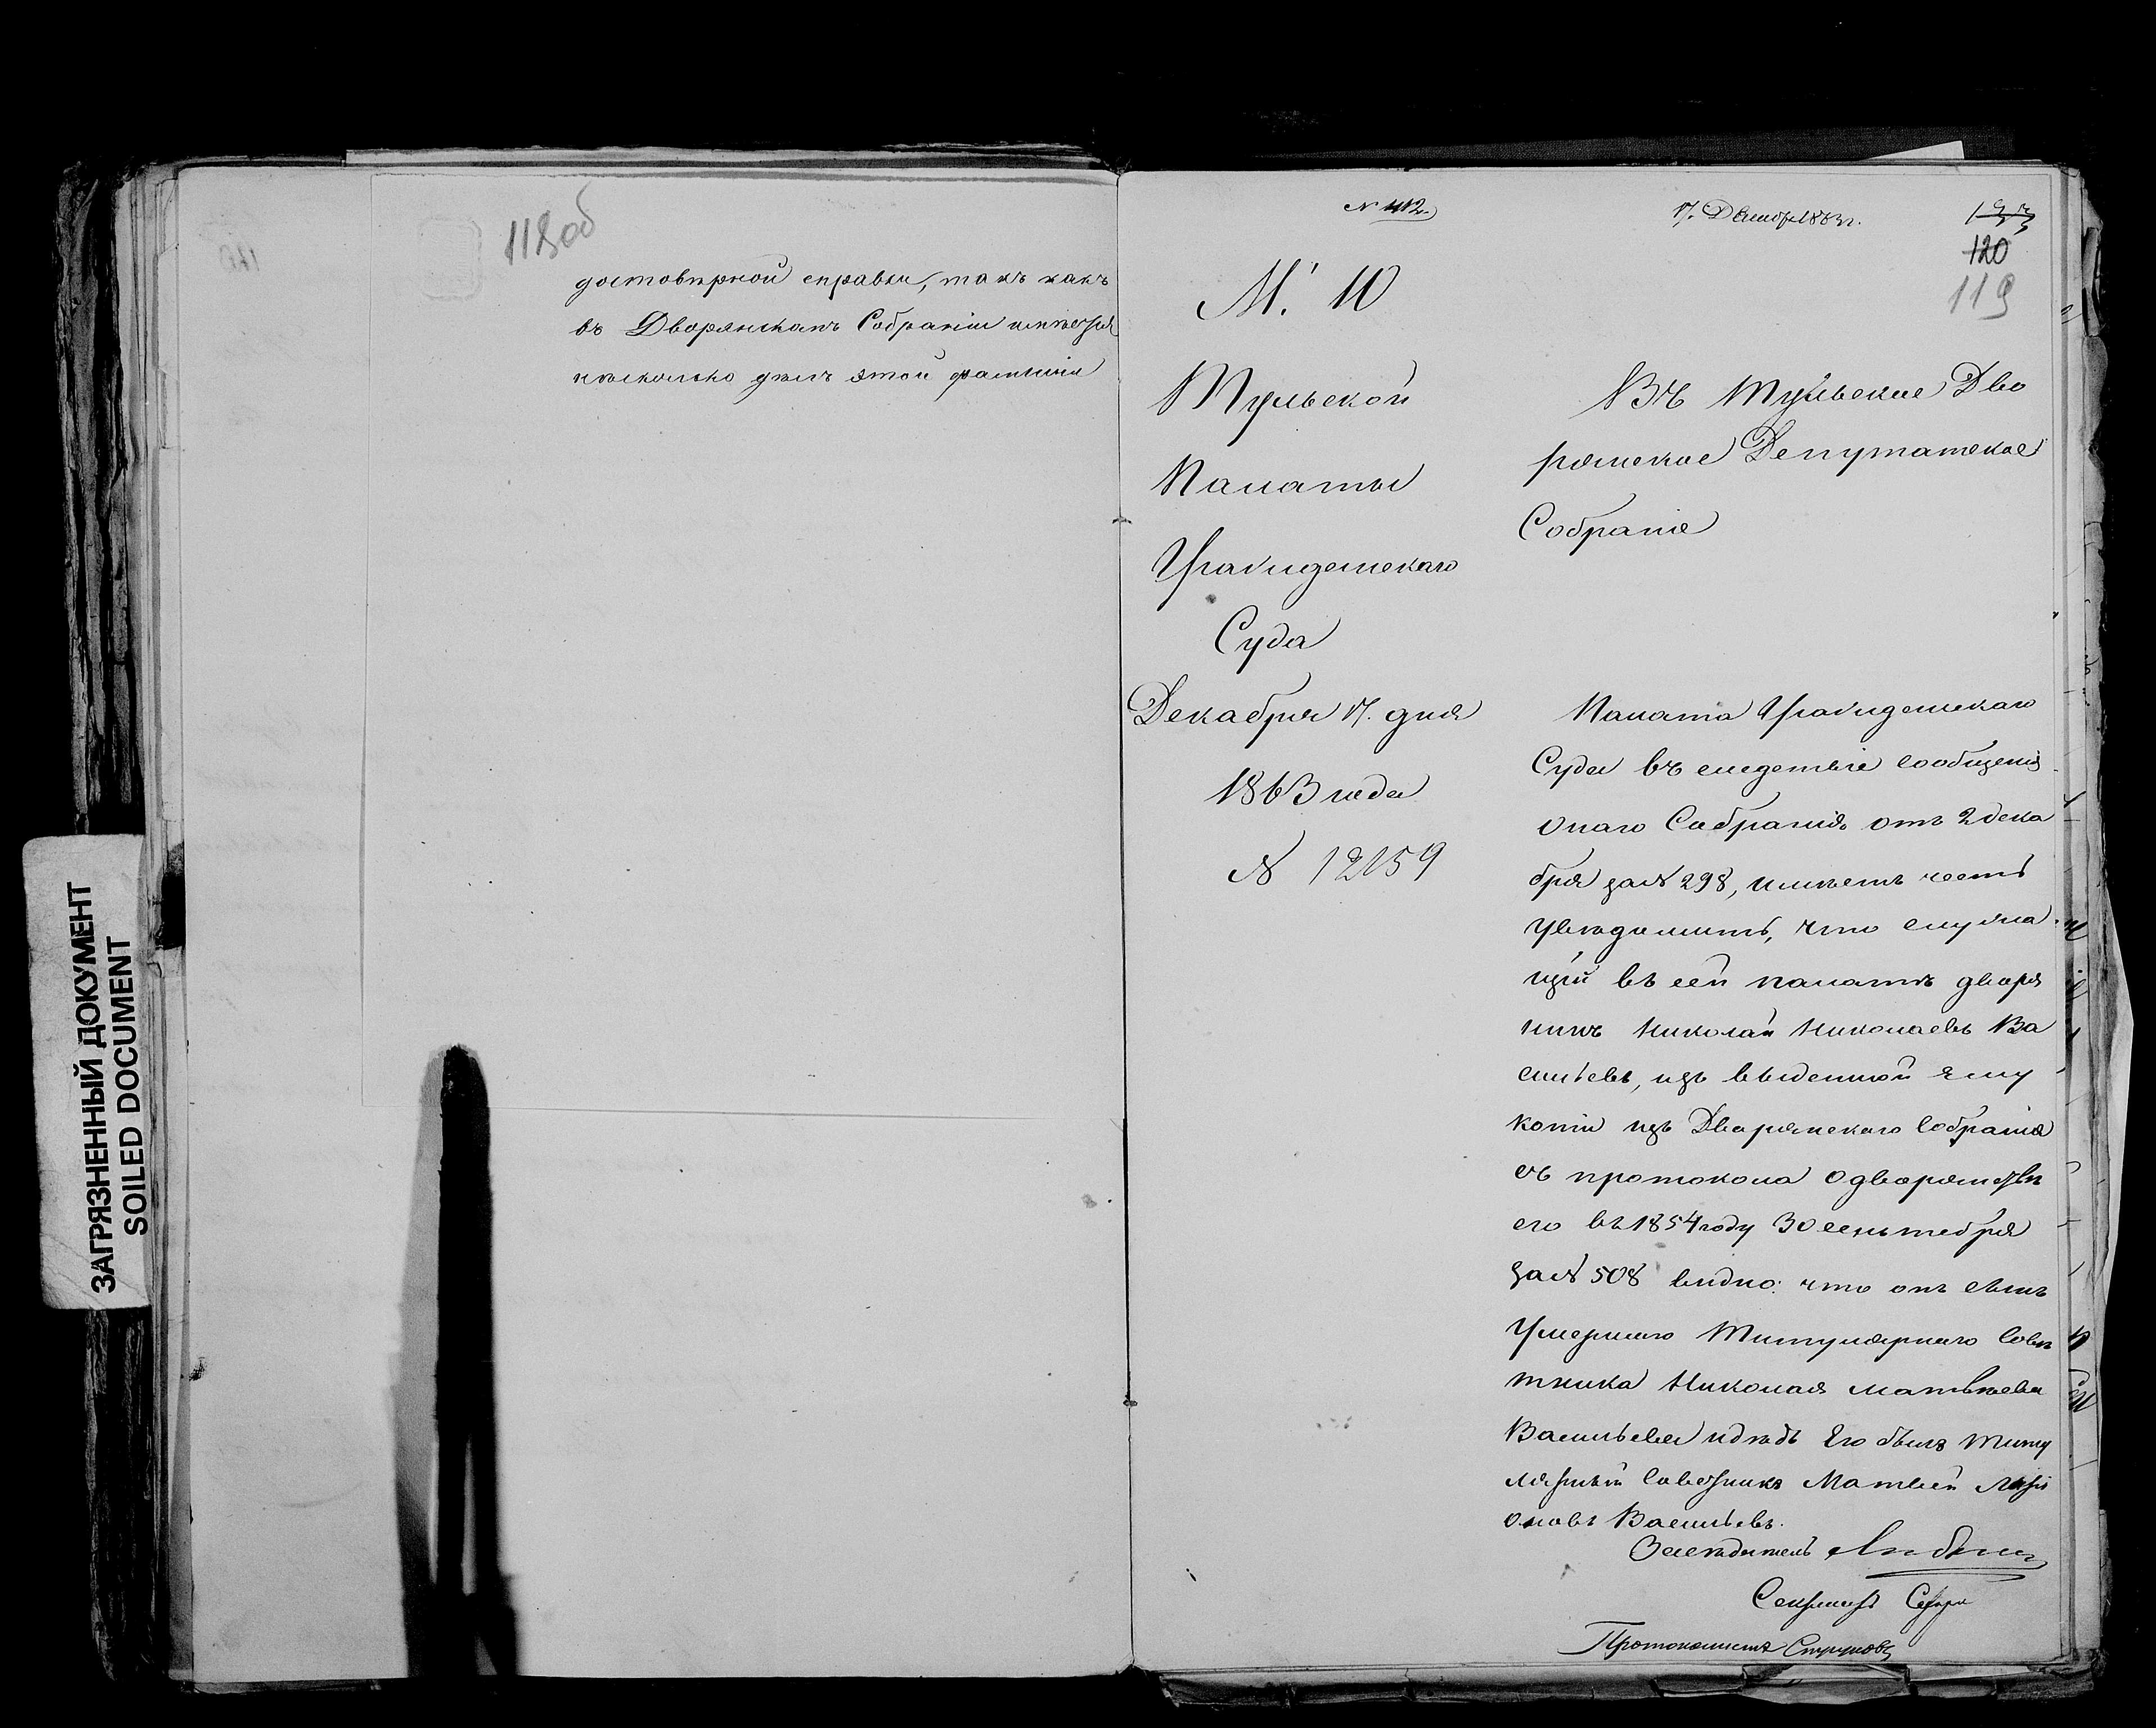 118об
достовѣрной справки, такъ какъ
въ Дворянскомъ Собраніи имѣется
нѣсколько дѣлъ этой фамиліи
ЗАГРЯЗНЕННЫЙ ДОКУМЕНТ
SOILED DOCUMENT
N 412.
17. Декабр 1863 г.
120
119
М. Ю
Тульской
Палаты
Гражданскаго
Суда
Декабря 17. дня
1863 года
№ 12159
Въ Тульское Дво
рянское Депутатское
Собраніе
Палата Гражданскаго
Суда въ следствіе сообщенія
онаго Собранія отъ 2 дека
бря за № 298, имѣетъ честь
увѣдомить, что служа
щій въ сей палатѣ дворя
нинъ Николай Николаевъ Ва
сильевъ, изъ выданной ему
копіи изъ Дворянскаго Собранія
съ протокола о дворянствѣ
его въ 1854 году 30 сентебря
за № 508 видно: что онъ сынъ
Умершаго Титулярнаго Совѣ
тника Николая Матвѣева
Васильева и дѣдъ Его былъ Титу
лярный Советникъ Матвей
Васильевъ.
Заседатель
Секретарь
Протоколистъ